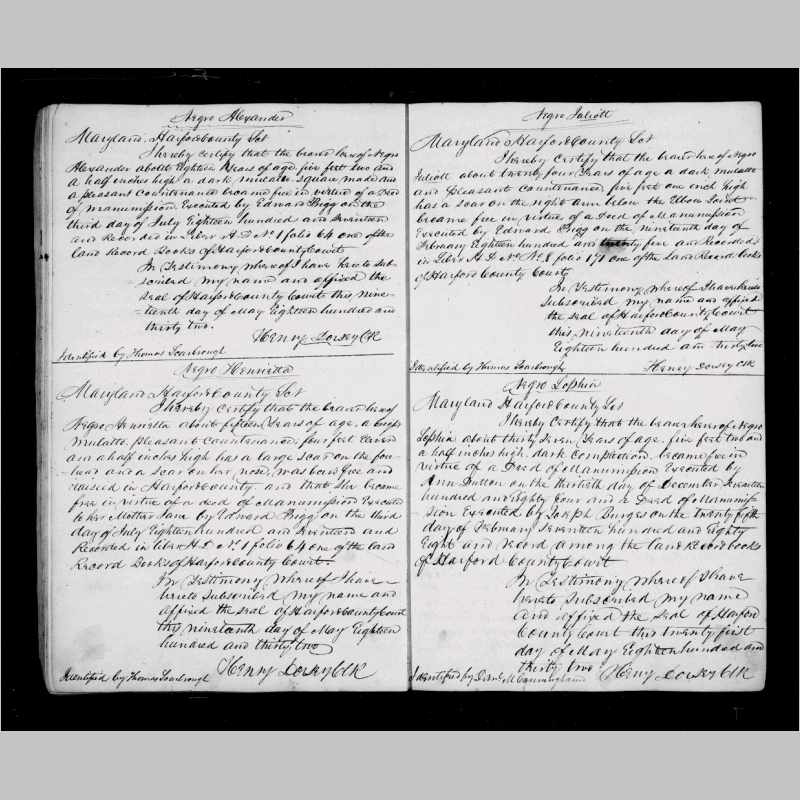 Negro Alexander
Maryland, Harford County Sct
I hereby certify that the bearer hereof Negro
Alexander about Eighteen Years of age, five feet two and
a half inches high a dark mulatto square made and
a pleasant countenance became free in virtue of a Deed
of manumission Executed by Edward Prigg on the
third day of July Eighteen hundred and Seventeen
and Recorded in Liber H.D. No. 1 folio 64 one of the
Land Record Books of Harford County Court
In Testimony whereof I have hereto Sub-
scribed my name and affixed the
Seal of Harford County Court this nine-
teenth day of May Eighteen hundred and
thirty two.
Henry Dorsey Clk
Identified by Thomas Scarbrough
Negro Henrietta
Maryland Harford County Sct
I hereby Certify that the bearer hereof
Negro Henrietta about fifteen Years of age, a
mulatto, pleasant Countenance four feet Eleven
and a half inches high has a large Scar on the fore-
head and a Scar on her nose, was born free and
raised in Harford County and that She became
free in virtue of a deed of Manumission Executed
to her Mother Jane by Edward Prigg on the third
day of July Eighteen hundred and Seventeen and
Recorded in Liber H.D. No. 1 folio 64 one of the Land
Record Books of Harford County Court.
In Testimony whereof I have
hereto Subscribed my name and
affixed the Seal of Harford County Court
this nineteenth day of May Eighteen
hundred and thirty two
Henry Dorsey Clk
Identified by Thomas Scarbrough
Negro Juliott
Maryland Harford County Sct
I hereby Certify that the bearer hereof Negro
Juliott about twenty four Years of age a dark mulatto
and pleasant Countenance five feet one inch high
has a Scar on the right arm below the Elbow Joint
became free in virtue of a Deed of Manumission
Executed by Edward Prigg on the nineteenth day of
February Eighteen hundred and twenty five and Recorded
in Liber H.D. No. 8 folio 171 one of the Land Record books
of Harford County Court
In Testimony whereof I have hereto
Subscribed my name and affixed
the Seal of Harford County Court
this nineteenth day of May
Eighteen hundred and thirty two
Identified by Thomas Scarbrough Henry Dorsey Clk
Negro Sophia
Maryland Harford County Sct
I hereby Certify that the bearer hereof Negro
Sophia about thirty Seven Years of age, five feet two and
a half inches high, dark Complection, became free in
virtue of a Deed of Manumission Executed by
Ann Dutton on the thirtieth day of December Seventeen
hundred and Eighty four and a Deed of Manumis-
sion Executed by Joseph Burges on the twenty fifth
day of February Seventeen hundred and Eighty
Eight and record among the land Record books
of Harford County Court
In Testimony whereof I have
hereto Subscribed my name
and affixed the Seal of Harford
County Court this twenty first
day of May Eighteen hundred and
thirty two
Identified by M Cunningham Henry Dorsey Clk